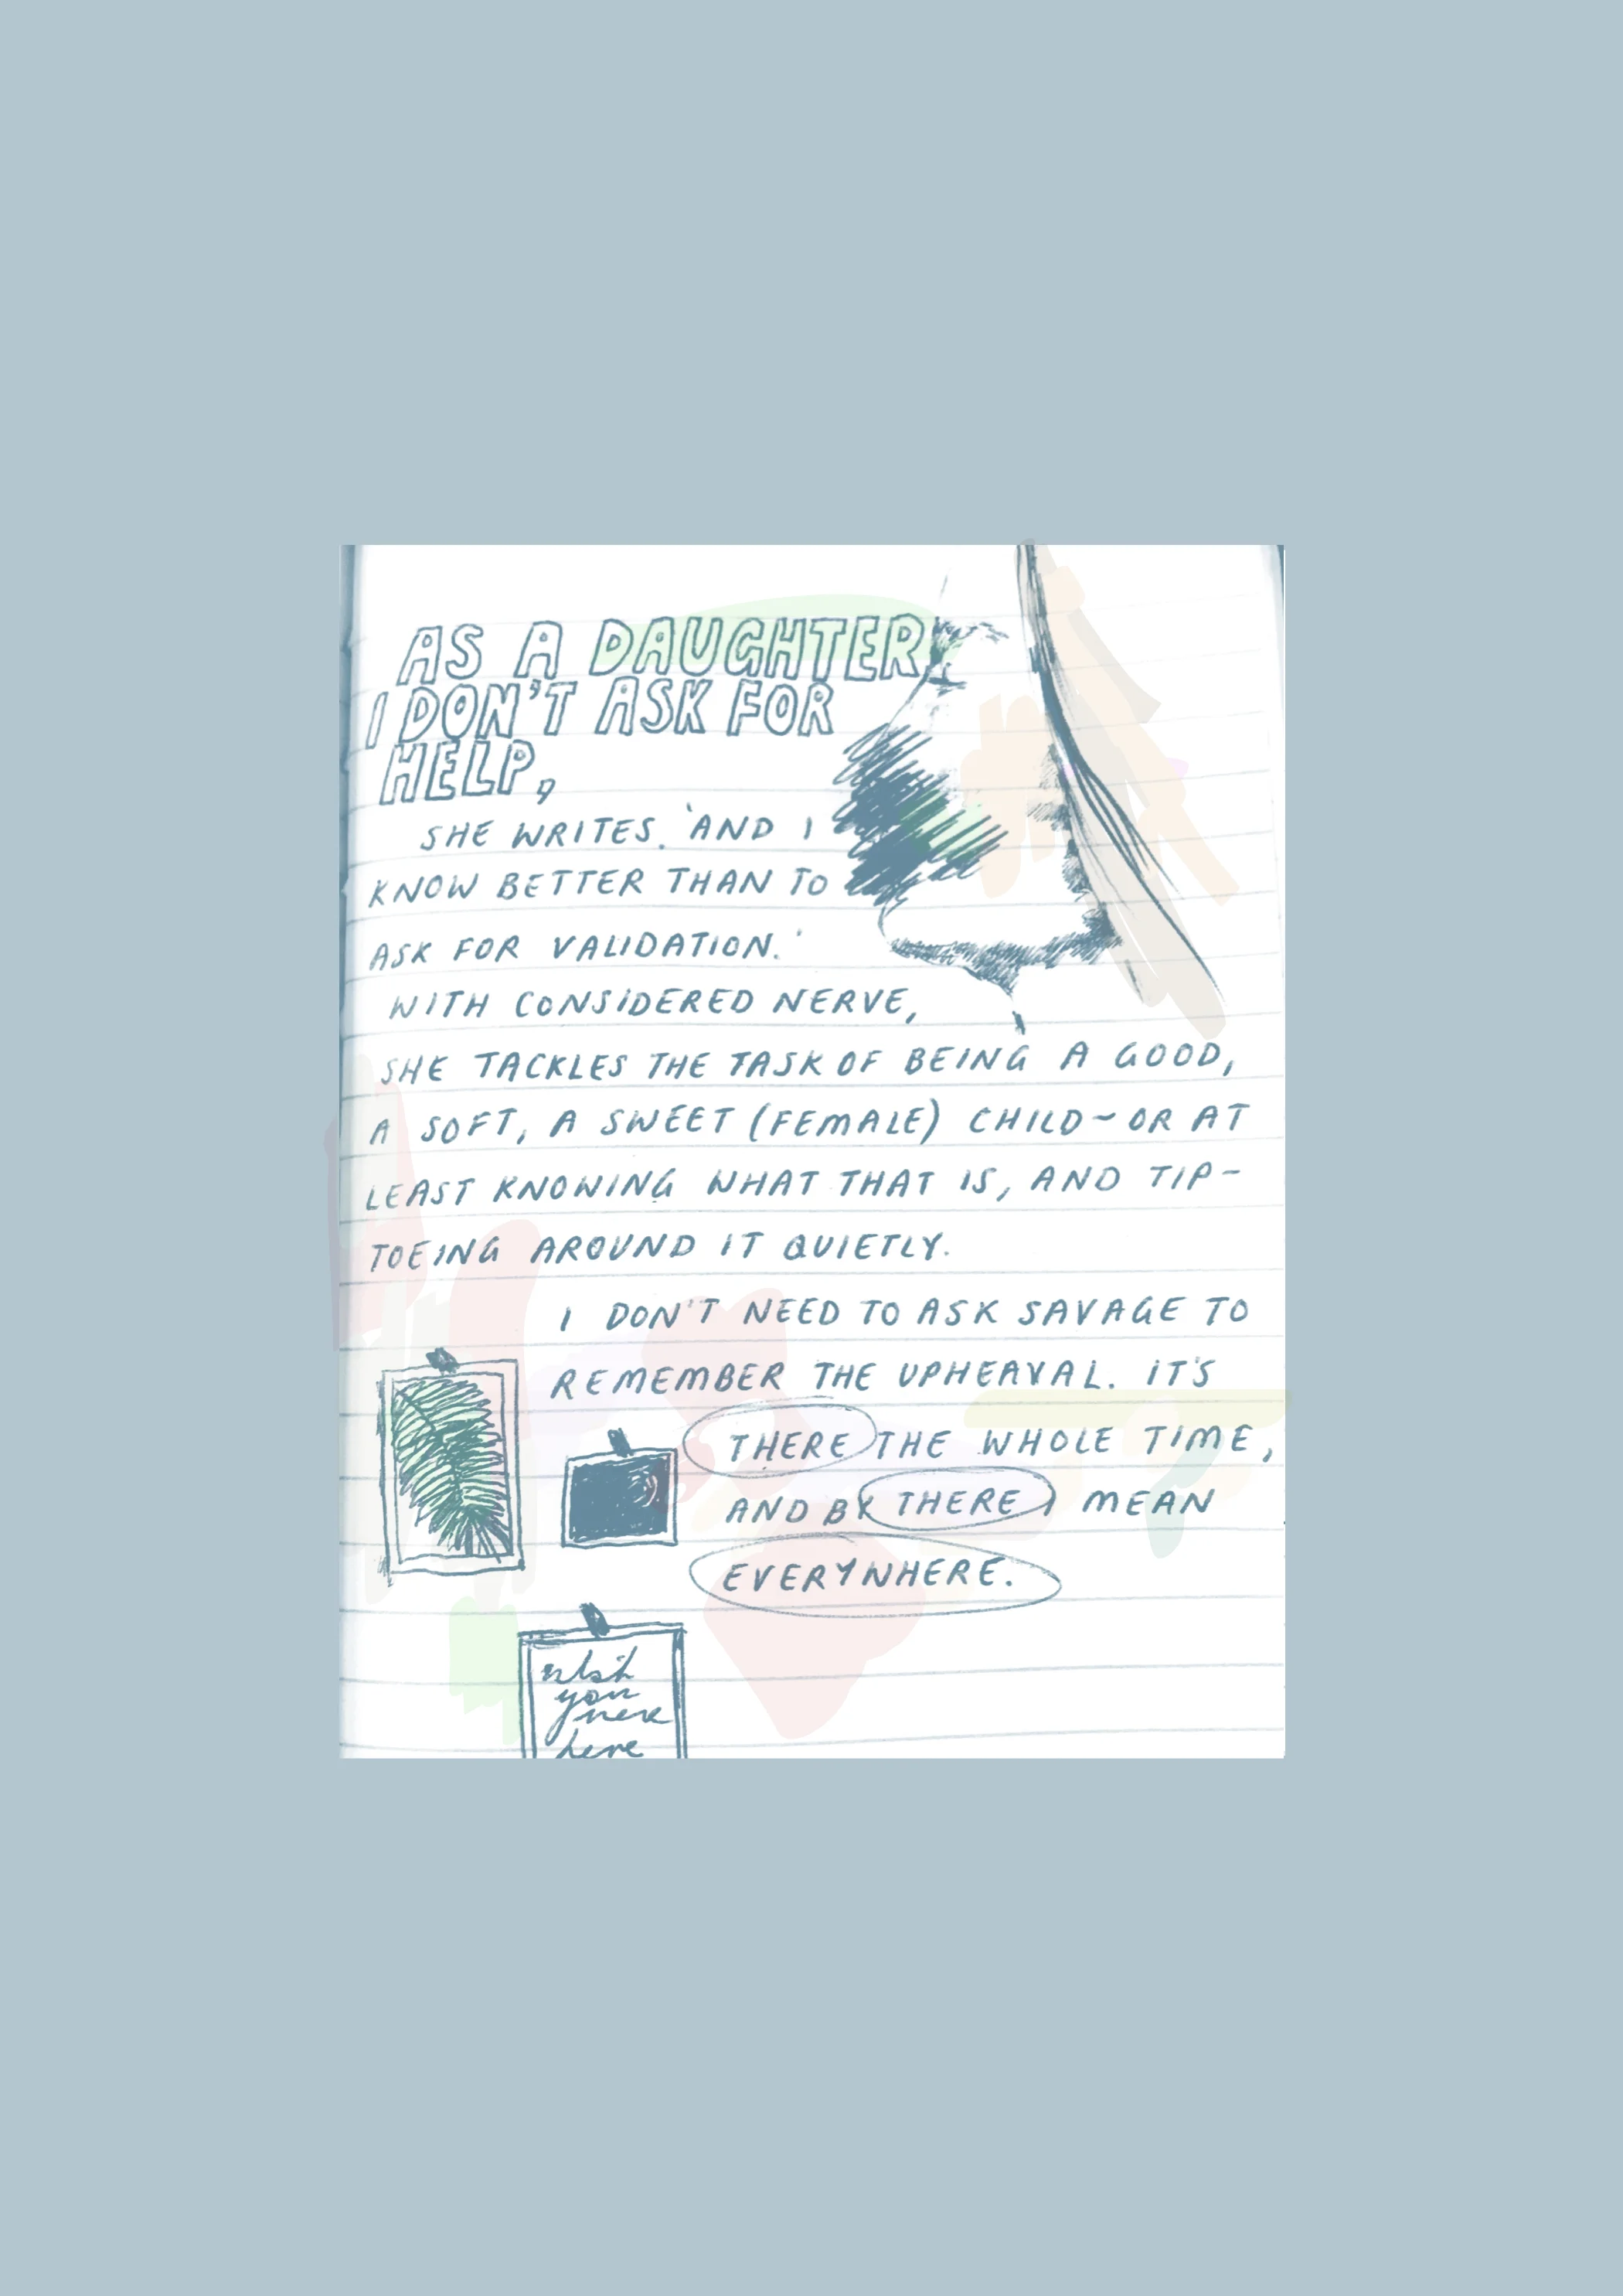 AS A DAUGHTER,
I DON'T ASK FOR
HELP,
SHE WRITES. 'AND I
KNOW BETTER THAN TO
ASK FOR VALIDATION.'
WITH CONSIDERED NERVE,
SHE TACKLES THE TASK OF BEING A GOOD,
A SOFT, A SWEET (FEMALE) CHILD – OR AT
LEAST KNOWING WHAT THAT IS, AND TIP-
TOEING AROUND IT QUIETLY.
I DON'T NEED TO ASK SAVAGE TO
REMEMBER THE UPHEAVAL. IT'S
THERE THE WHOLE TIME,
AND BY THERE I MEAN
EVERYWHERE.
wish
you
were
here